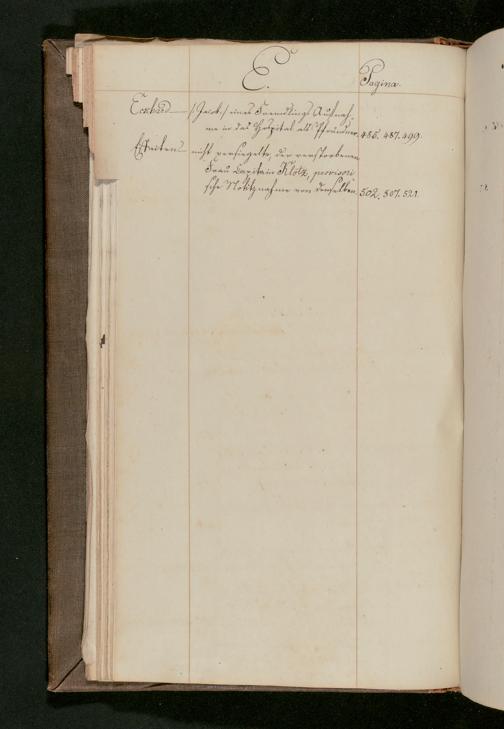 E.
Pagina.
Eckhard /:Jacob:/ eines Fremdlings Aufnah-
me in das Hospital als Pfründner. 486. 487. 499.
Effecten nicht versiegelte, der verstorbenen
Frau Capitain Klotz, provisori-
sche Notiznahme von denselben 502. 507. 521.